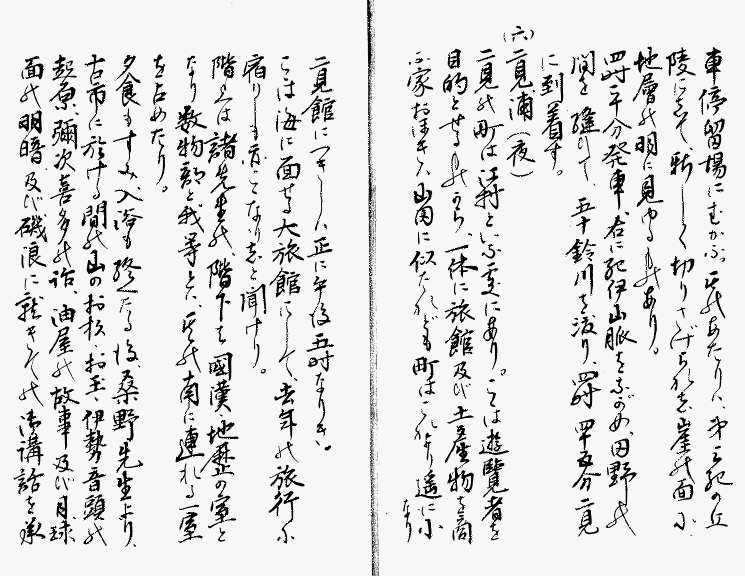 車停留場にむかふ。其のあたりは、第三紀の丘
陵にして、新しく切りさげられし崖の面に、
地層の明に見ゆるものあり。
四時二十分発車、右に紀伊山脈をながめ、田野の
間を縫ひて、五十鈴川を渡り、四時四十五分二見
に到着す。
(六)二見浦(夜)
二見の町は江村といふ處にあり。こは遊覧者を
目的とせるものから、一体に旅館及び土産物を商
ふ家おほきは、山田に似たれども町はこれより遥に小
なり
二見館につきしは正に午後五時なりき。
こは海に面せる大旅館にして、去年の旅行に
宿りしも亦こなりしと聞けり。
階上は諸先生の、階下は國漢・地歴の室と
なり数物部と我等とは、其の南に連れる一室
を占めたり。
夕食もすみ、入浴も終へたる後、桑野先生より、
古市に於ける間の山のお杉、お玉、伊勢音頭の
起原、彌次喜多の話、油屋の故事及び月球
面の明暗、及び磯浪に就きての御講話を承